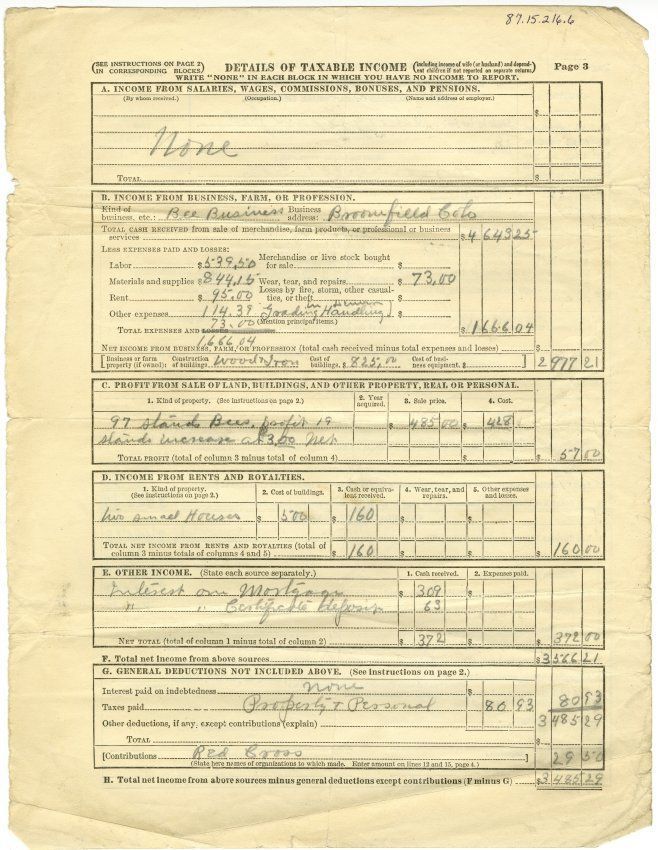 87.15.216.6
(SEE INSTRUCTIONS ON PAGE 2 IN CORRESPONDING BLOCKS.) DETAILS OF TAXABLE INCOME (including income of wife (or husband) and dependent children if not reported on separate returns) Page 3
WRITE "NONE" IN EACH BLOCK IN WHICH YOU HAVE NO INCOME TO REPORT.
A. INCOME FROM SALARIES, WAGES, COMMISSIONS, BONUSES, AND PENSIONS.
(By whom received.) (Occupation.) (Name and address of employer.)
$
None
TOTAL $
B. INCOME FROM BUSINESS, FARM, OR PROFESSION.
Kind of business, etc.: Bee Business Business address: Broomfield Colo
TOTAL CASH RECEIVED from sale of merchandise, farm products, or professional or business services $ 4 643 25
LESS EXPENSES PAID AND LOSSES: Merchandise or live stock bought
Labor $ 539,50 for sale $
Materials and supplies $ 844,15 Wear, tear, and repairs $ 73,00
Rent $ 95,00 Losses by fire, storm, other casualties, or theft $
Other expenses 114.39 Grading Handling
73.00 (Mention principal items.)
TOTAL EXPENSES AND LOSSES $ 1 666 04
1,666 04
NET INCOME FROM BUSINESS, FARM, OR PROFESSION (total cash received minus total expenses and losses)
[Business or farm property (if owned): Construction of buildings. Wood & Iron Cost of buildings. $ 825,00 Cost of business equipment. $ ] 2 977 21
C. PROFIT FROM SALE OF LAND, BUILDINGS, AND OTHER PROPERTY, REAL OR PERSONAL.
1. Kind of property. (See instructions on page 2.) 2. Year acquired. 3. Sale price. 4. Cost.
97 Stands Bees, profit 19 $ 485 00 $ 428
stands increase at 3,00 Net
TOTAL PROFIT (total of column 3 minus total of column 4) $ 57 00
D. INCOME FROM RENTS AND ROYALTIES.
1. Kind of property. (See instructions on page 2.) 2. Cost of buildings. 3. Cash or equivalent received. 4. Wear, tear, and repairs. 5. Other expenses and losses.
two small Houses $ 500 $ 160 $ $
TOTAL NET INCOME FROM RENTS AND ROYALTIES (total of column 3 minus totals of columns 4 and 5) $ 160 $ $ $ 160 00
E. OTHER INCOME. (State each source separately.) 1. Cash received. 2. Expenses paid.
Interest on Mortgage $ 309 $
" " Certificate deposit 63
NET TOTAL (total of column 1 minus total of column 2) $ 372 $ $ 372 00
F. Total net income from above sources $ 3566 21
G. GENERAL DEDUCTIONS NOT INCLUDED ABOVE. (See instructions on page 2.)
Interest paid on indebtedness None $
Taxes paid Property & Personal 80 93 80 93
Other deductions, if any, except contributions (explain) 3 485 29
TOTAL $
[Contributions Red Cross ] 29 50
(State here names of organizations to which made. Enter amount on lines 12 and 15, page 4.)
H. Total net income from above sources minus general deductions except contributions (F minus G) $ 3,485 29